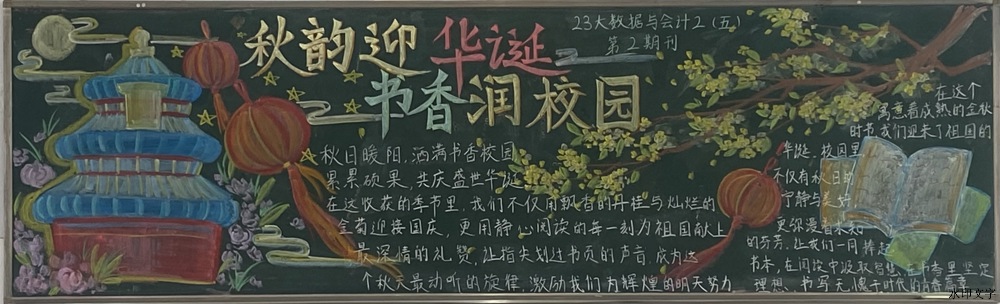 秋韵迎华诞
书香润校园
23大数据与会计2(五)
第2期刊
秋日暖阳,洒满书香校园
累累硕果,共庆盛世华诞
在这收获的季节里,我们不仅用飘香的丹桂与灿烂的
金菊迎接国庆,更用静心阅读的每一刻为祖国献上
最深情的礼赞,让指尖划过书页的声音,成为这
个秋天最动听的旋律,激励我们为辉煌的明天努力
在这个
寓意着成熟的金秋
时节,我们迎来了祖国的
华诞,校园里
不仅有秋日的
宁静与美好,
更弥漫着
的芬芳,让我们一同捧起
书本,在阅读中汲取智慧,在书香里坚定
理想,书写无愧于时代的青春篇章
水印文字